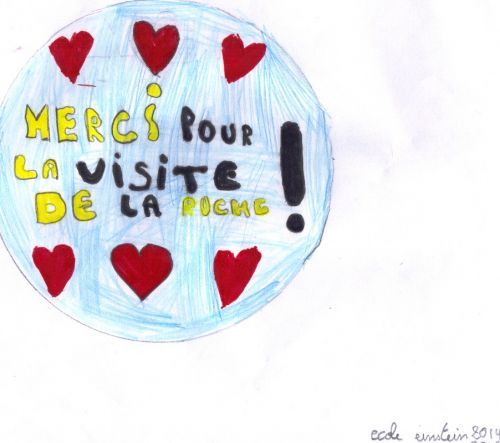 MERCi POUR
LA ViSiTE
DE LA RUCHE !
ecole einstein 2014